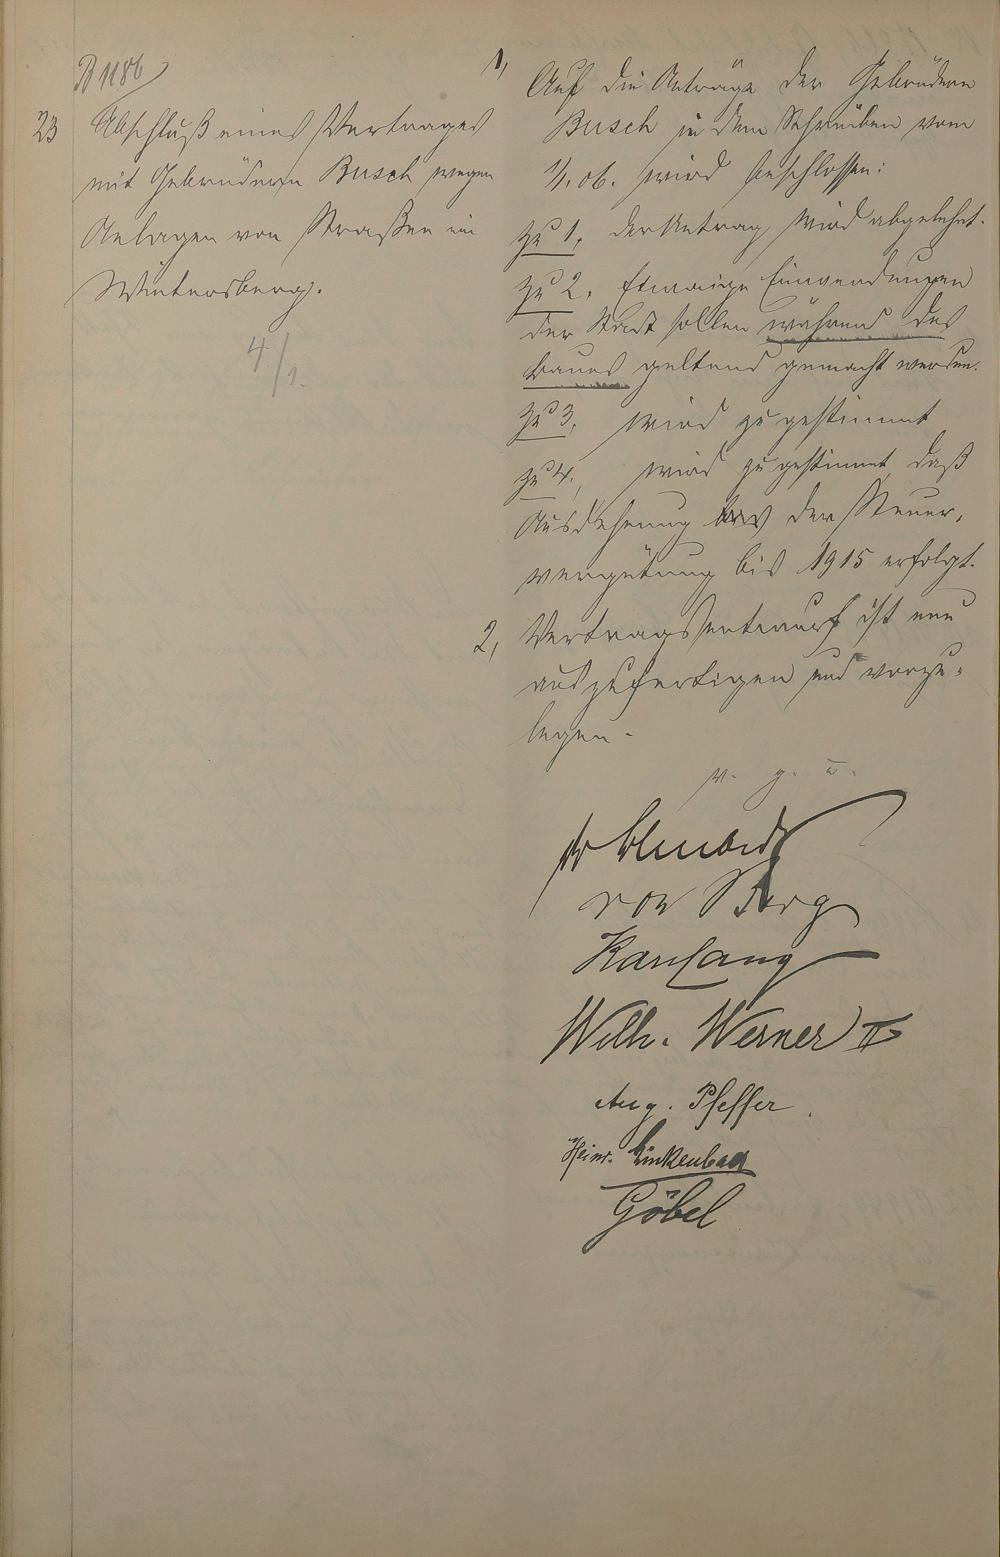 B 1186
23 Abschluß eines Vertrages
mit Gebrüdern Busch wegen
Anlagen von Straßen im
Wintersberg.
4/1.
1, Auf die Anträge der Gebrüdern
Busch in dem Schreiben vom
1/1. 06. wird beschlossen:
zu 1, der Antrag wird abgelehnt.
zu 2, Etwaige Einwendungen
der Stadt sollen während des
Baues geltend gemacht werden.
zu 3, wird zugestimmt
zu 4, wird zugestimmt, daß
Ausdehnung der Steuer-
vergütung bis 1915 erfolgt.
2, Vertragsentwurf ist neu
auszufertigen und vorzu-
legen.
v. g. u.
von Berg
Karl Lang
Wilh. Werner II
Aug. Pfeffer.
Heinr. Linkenbach
Göbel